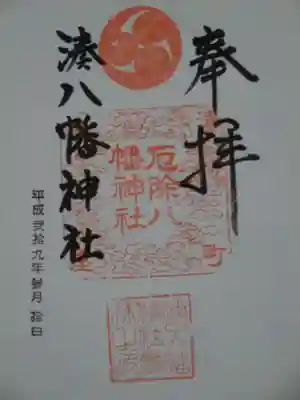 奉拝
湊八幡神社
厄除八
幡神社
平成弐拾九年参月拾日